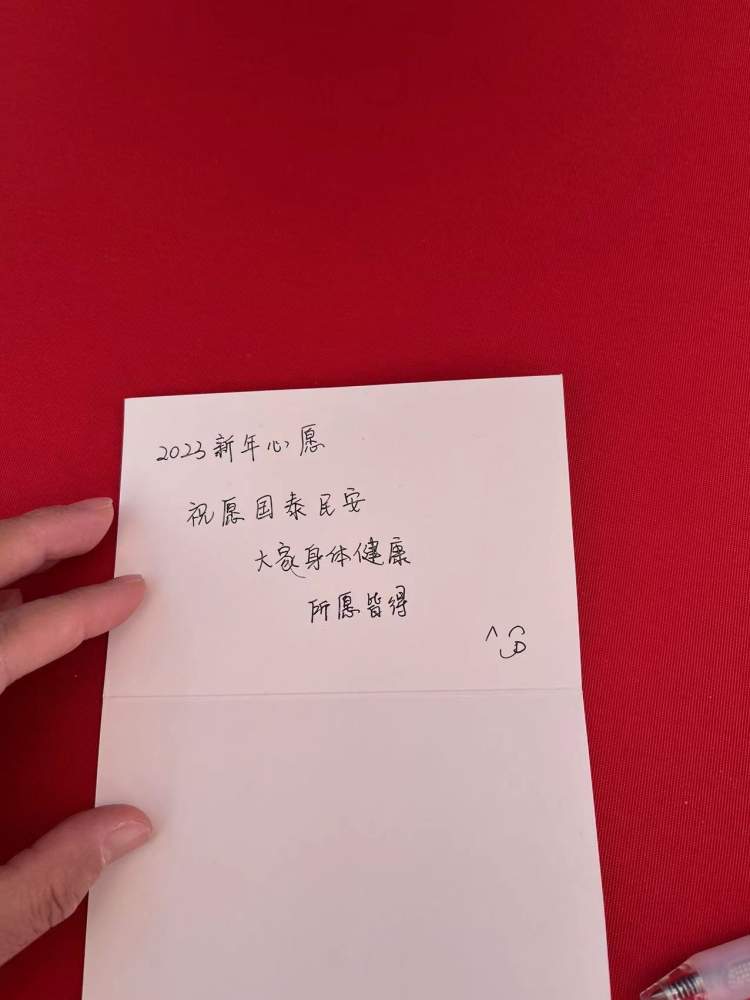 2023新年心愿
祝愿国泰民安
大家身体健康
所愿皆得